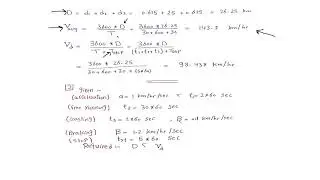 → D = d₁ + d₂ + d₃ = 0.415 + 25 + 0.415 = 26.25 km
→ Vavg = 3600 * D / T = 3600 * 26.25 / 30+600+30 = 143.2 km/hr
Vs = 3600 * D / T + Tstop = 3600 * D / (t₁+t₂+t₃) + Tstop
= 3600 * 26.25 / 30+600+30+(5*60) = 98.438 km/hr
[3] Given -
(acceleration) α = 1 km/hr/sec t₁ = 2*60 sec
(free running) t₂ = 30*60 sec
(coasting) t₃ = 2*60 sec
(Braking) β = 1.2 km/hr/sec
(stop) = 5*60 sec
Required is D S Vs